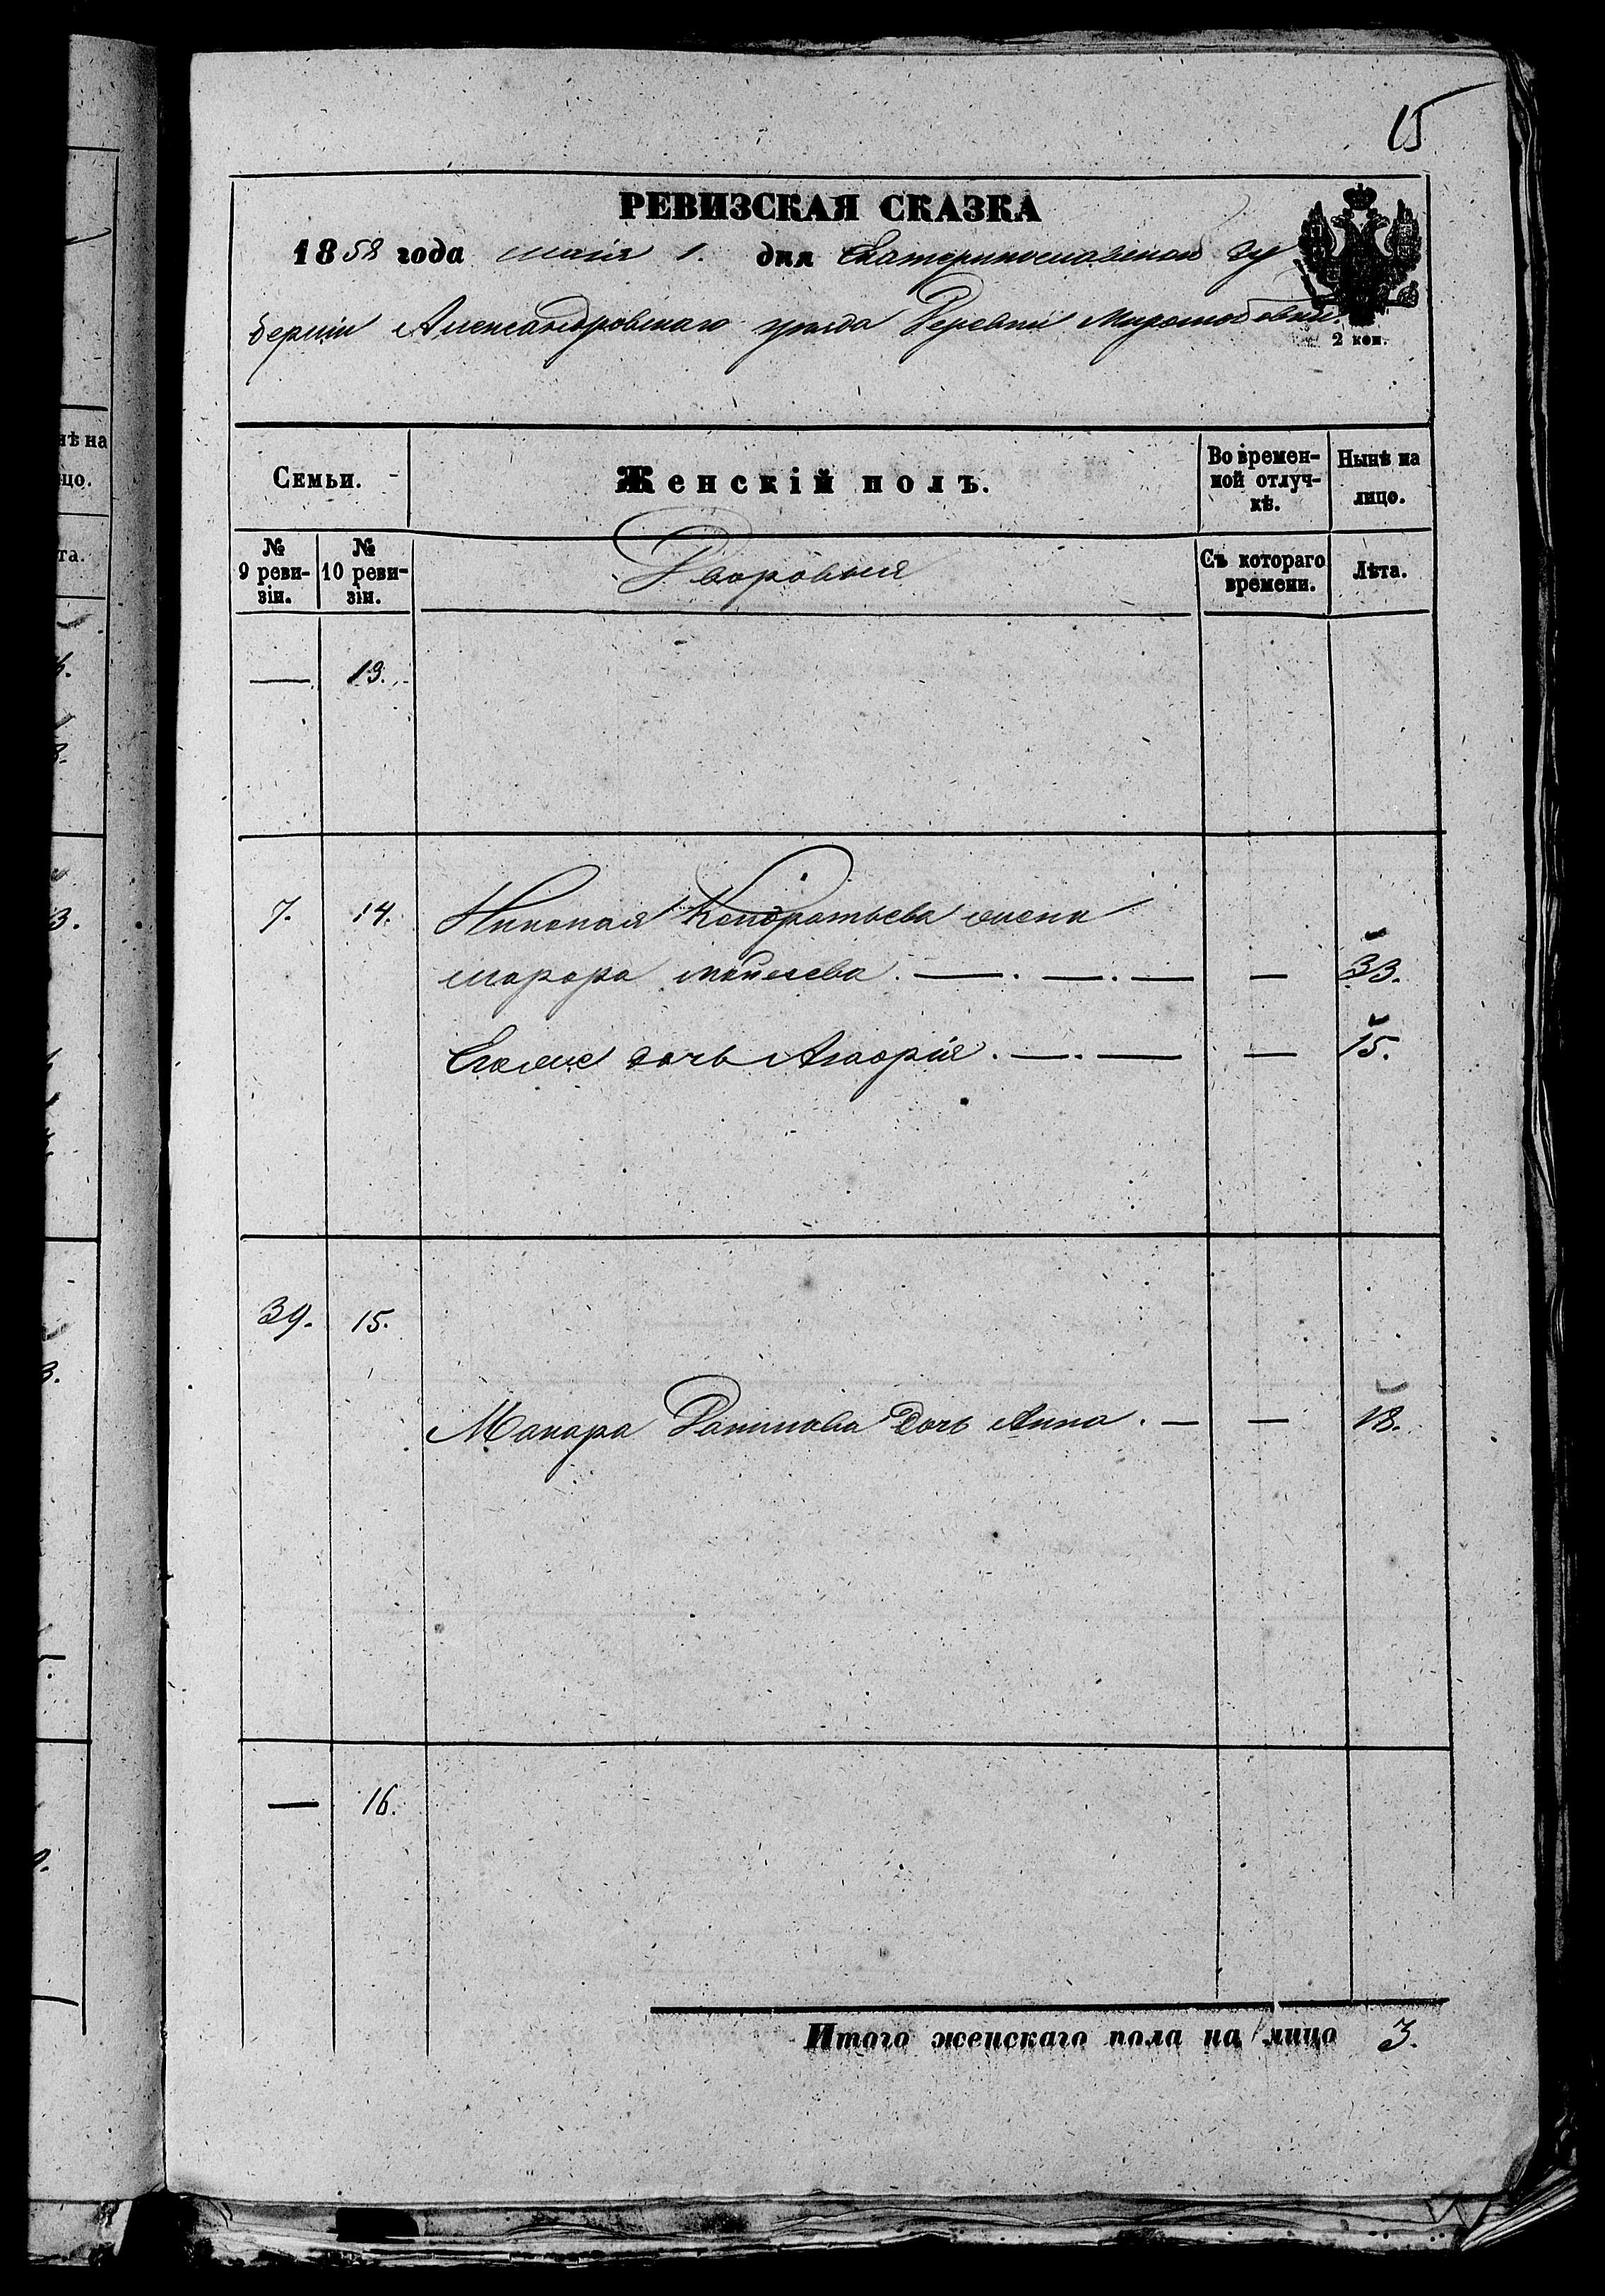 15
РЕВИЗСКАЯ СКАЗКА
1858 года маія 1. дня Екатеринославской гу
берніи Александровскаго уѣзда Деревни
2 коп.
Семьи.
Женскій полъ.
Во времен-
ной отлуч-
кѣ.
Нынѣ на
лицо.
№
9 реви-
зіи.
№
10 реви-
зіи.
Дворовыя
Съ котораго
времени.
Лѣта.
— 13.
7. 14. Николая Кондратьева жена
— 33.
Егоже дочь — 15.
39. 15.
Макара дочь Анна. — — 18.
— 16.
Итого женскаго пола на лицо 3.
нѣ на
цо.
та.